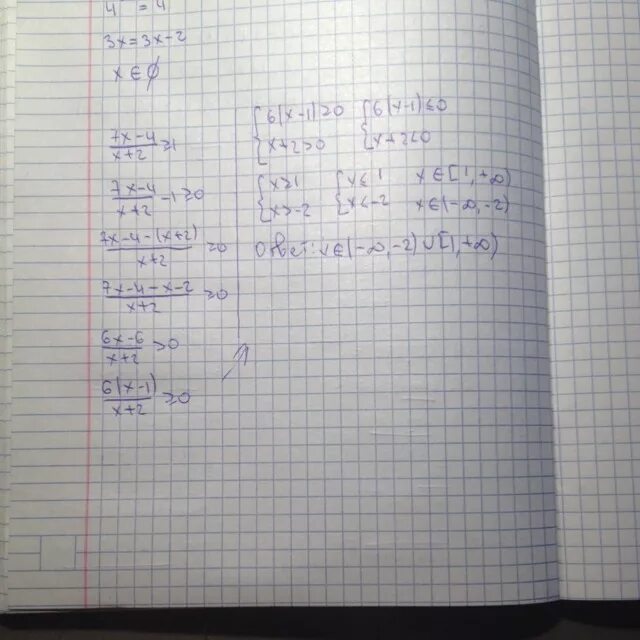 4 = 4
3x = 3x-2
x ∈ ∅
(7x-4)/(x+2) ≥ 1
(7x-4)/(x+2) - 1 ≥ 0
(7x-4-(x+2))/(x+2) ≥ 0
(7x-4-x-2)/(x+2) ≥ 0
(6x-6)/(x+2) ≥ 0
(6(x-1))/(x+2) ≥ 0
{6(x-1) ≥ 0 {6(x-1) ≤ 0
{x+2 > 0 {x+2 < 0
{x ≥ 1 {x ≤ 1 x ∈ [1, +∞)
{x > -2 {x < -2 x ∈ (-∞, -2)
Ответ: x ∈ (-∞, -2) ∪ [1, +∞)